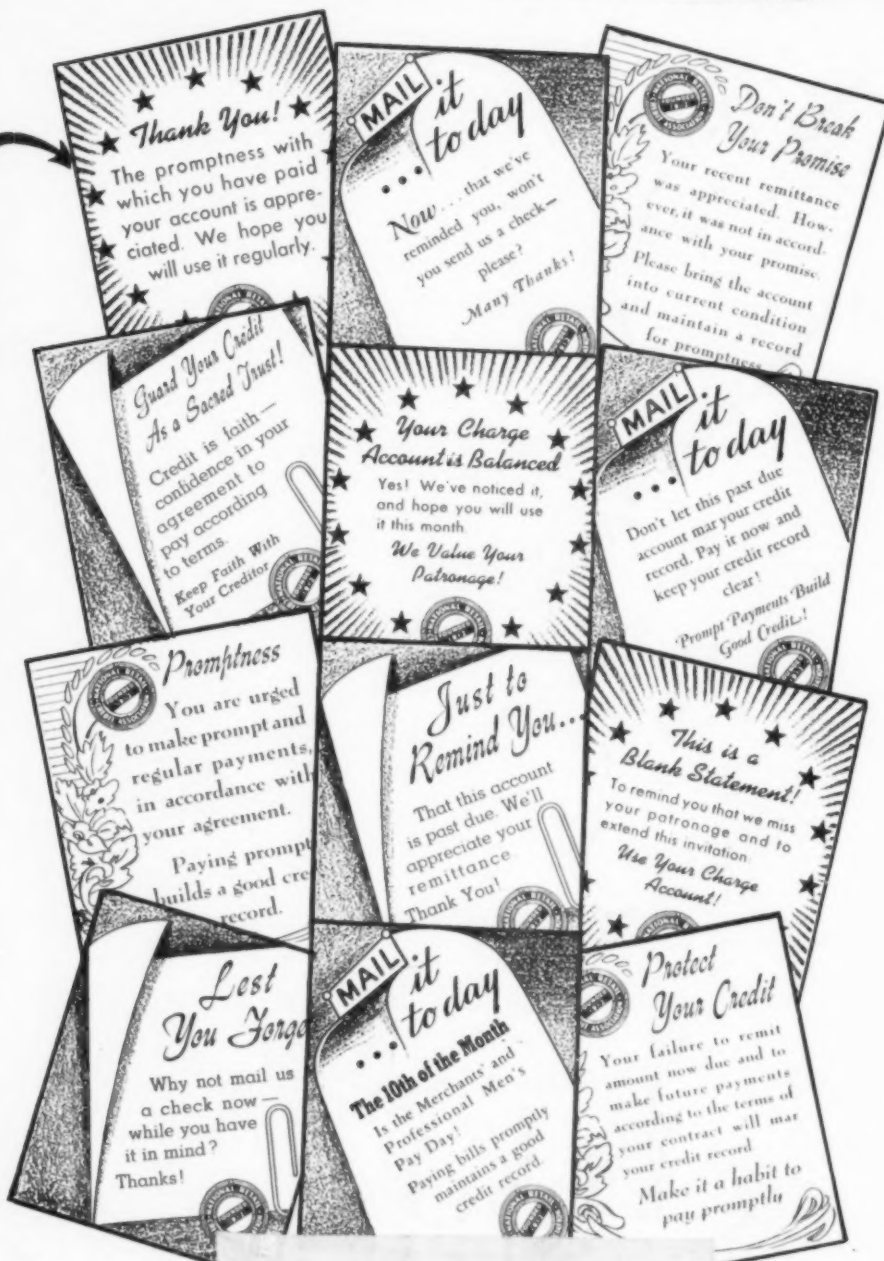 Thank You!
The promptness with
which you have paid
your account is appre-
ciated. We hope you
will use it regularly.
MAIL it
today
Now... that we've
reminded you, won't
you send us a check—
please?
Many Thanks!
NATIONAL RETAIL
ASSOCIATION
Don't Break
Your Promise
Your recent remittance
was appreciated. How-
ever, it was not in accord-
ance with your promise.
Please bring the account
into current condition
and maintain a record
for promptness
Guard Your Credit
As a Sacred Trust!
Credit is faith—
confidence in your
agreement to
pay according
to terms.
Keep Faith With
Your Creditor
Your Charge
Account is Balanced
Yes! We've noticed it,
and hope you will use
it this month.
We Value Your
Patronage!
MAIL it
... today
Don't let this past due
account mar your credit
record. Pay it now and
keep your credit record
clear!
Prompt Payments Build
Good Credit!
Promptness
You are urged
to make prompt and
regular payments,
in accordance with
your agreement.
Paying prompt
builds a good cre
record.
Just to
Remind You...
That this account
is past due. We'll
appreciate your
remittance.
Thank You!
This is a
Blank Statement!
To remind you that we miss
your patronage and to
extend this invitation:
Use Your Charge
Account!
Lest
You Forge
Why not mail us
a check now—
while you have
it in mind?
Thanks!
MAIL it
... today
The 10th of the Month
Is the Merchants' and
Professional Men's
Pay Day!
Paying bills promptly
maintains a good
credit record.
Protect
Your Credit
Your failure to remit
amount now due and to
make future payments
according to the terms of
your contract will mar
your credit record
Make it a habit to
pay promptly